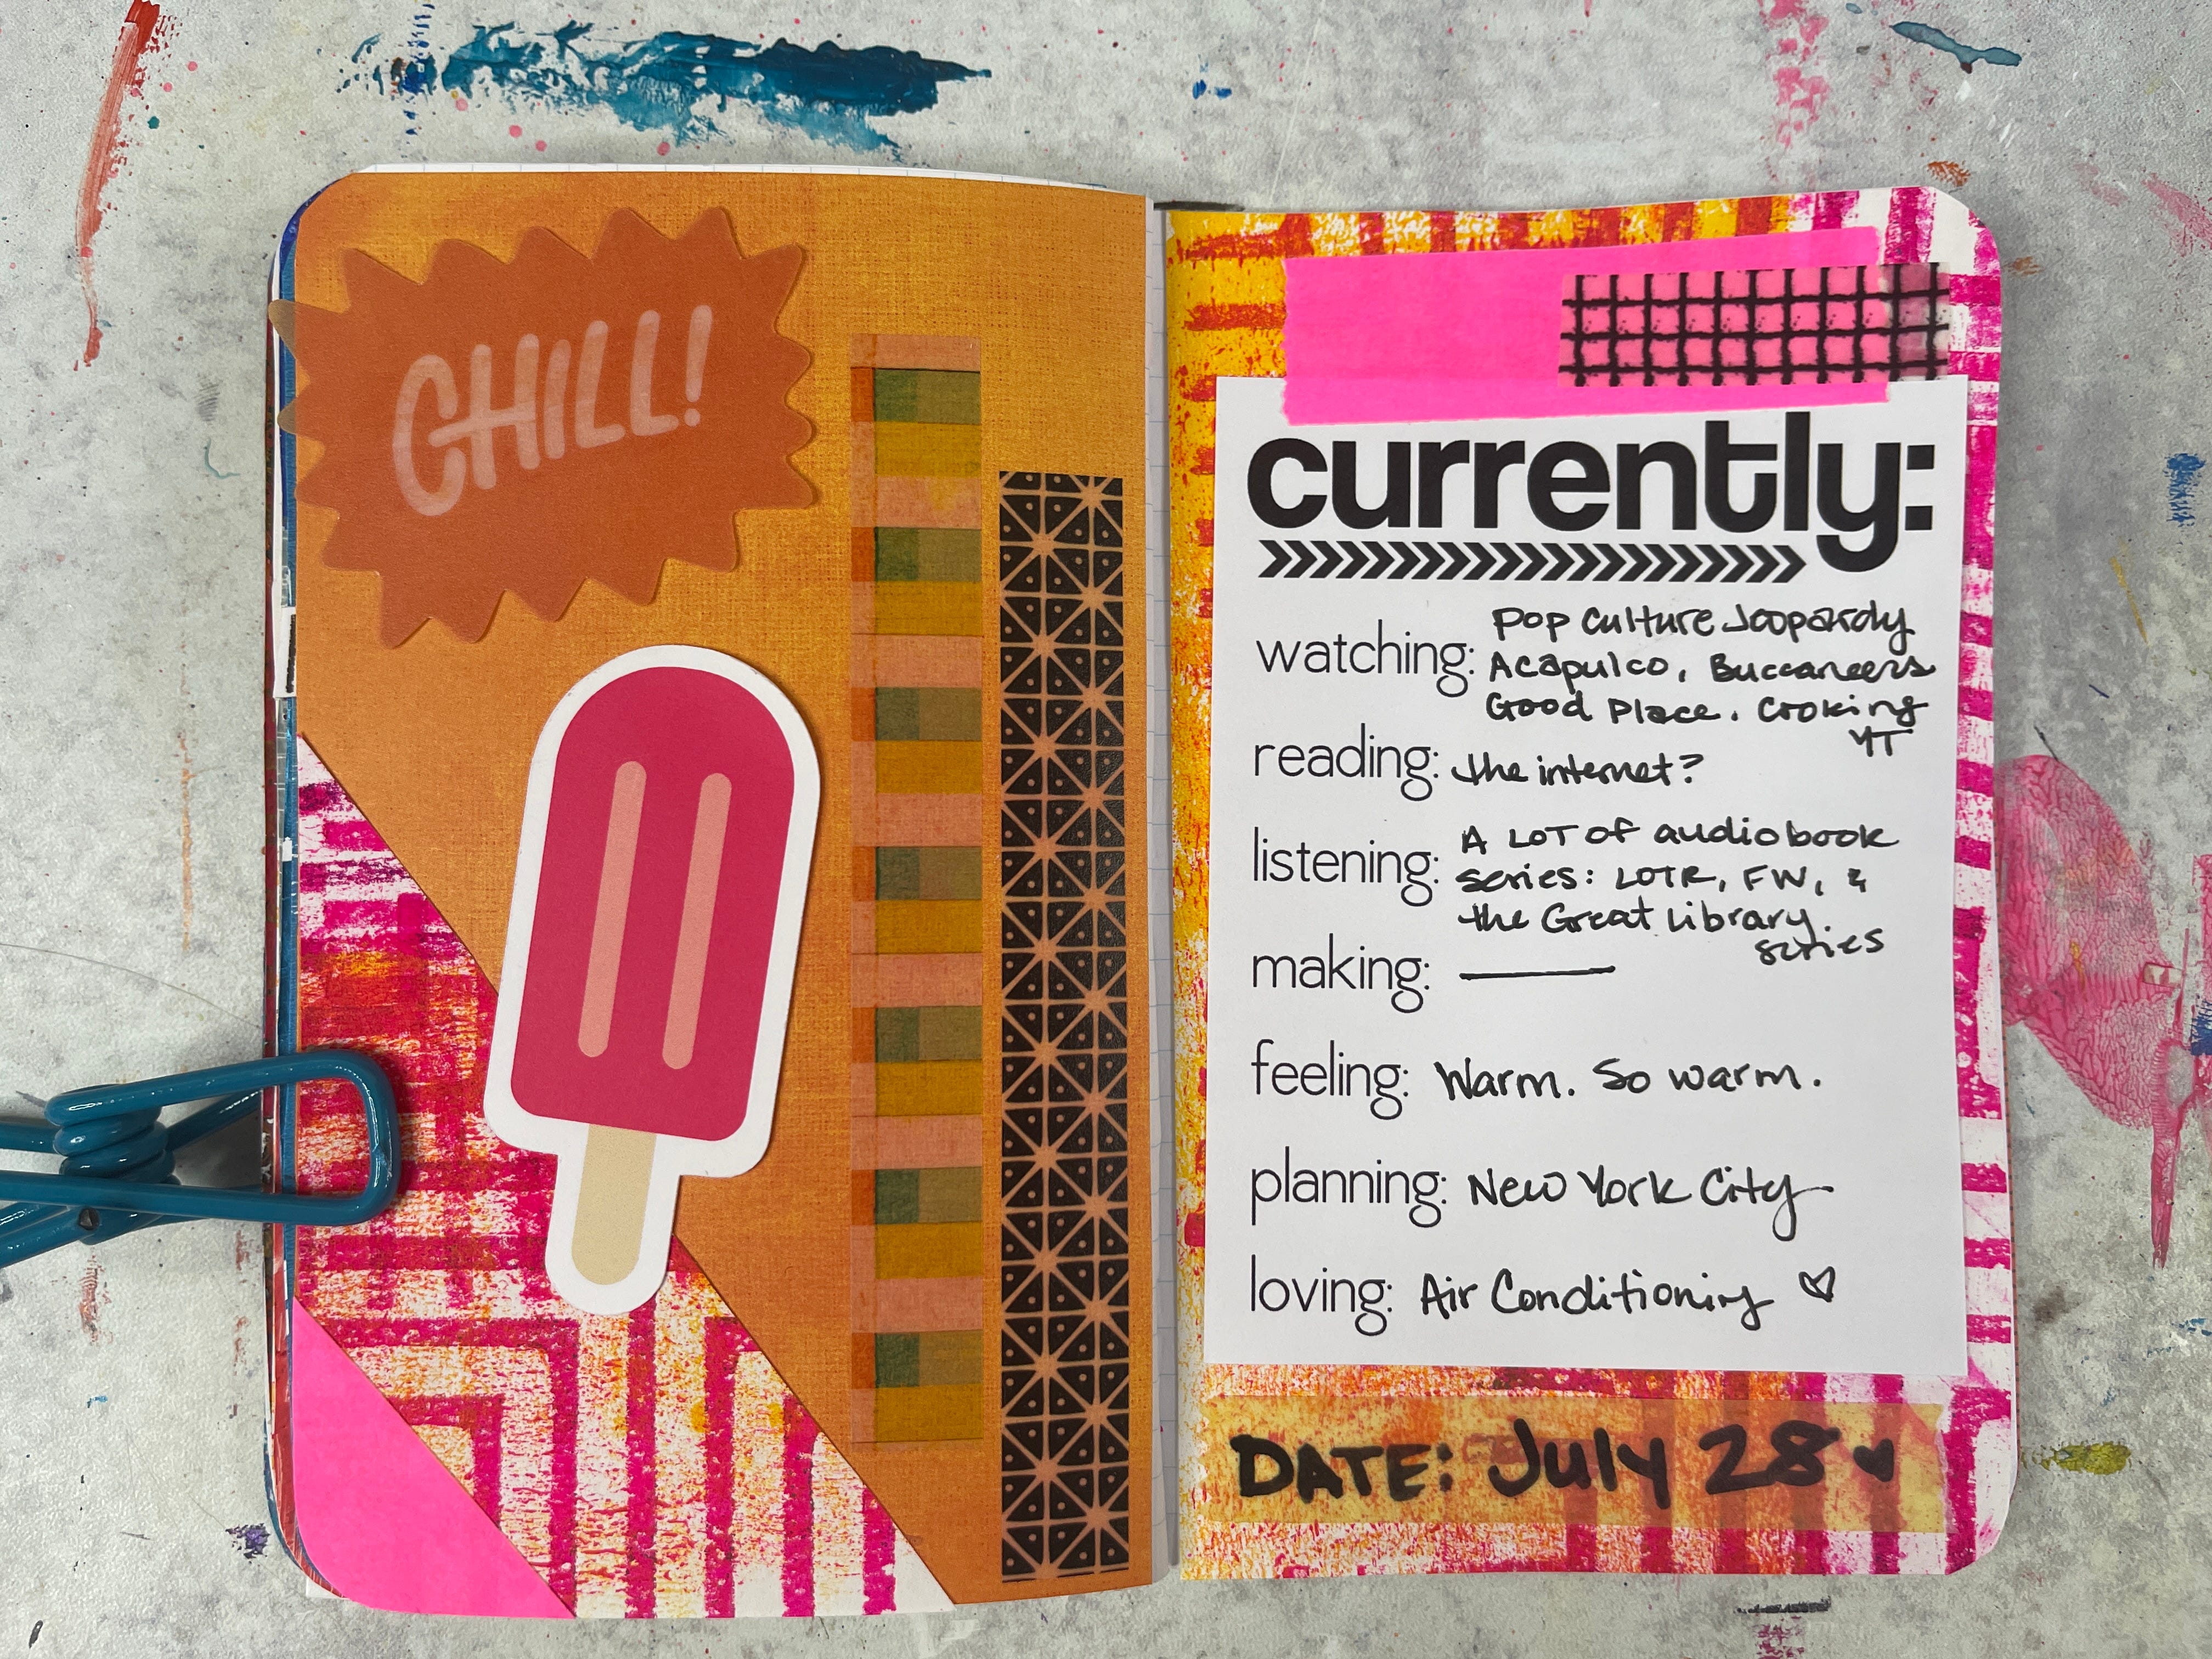 CHILL!
currently:
watching: Pop Culture Jeopardy
Acapulco, Buccaneers
Good Place. Cooking
YT
reading: the internet?
listening: A LOT OF audiobook
series: LOTR, FW, &
the Great Library
series
making: ———
feeling: Warm. So warm.
planning: New York City
loving: Air Conditioning ♡
DATE: July 28 ♥